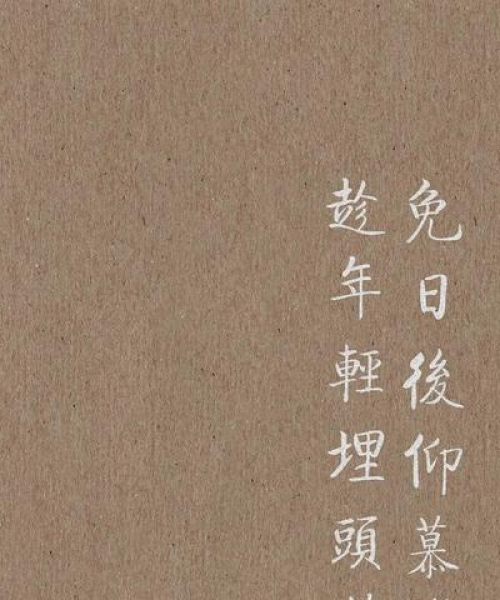 免日後仰慕
趁年輕埋頭